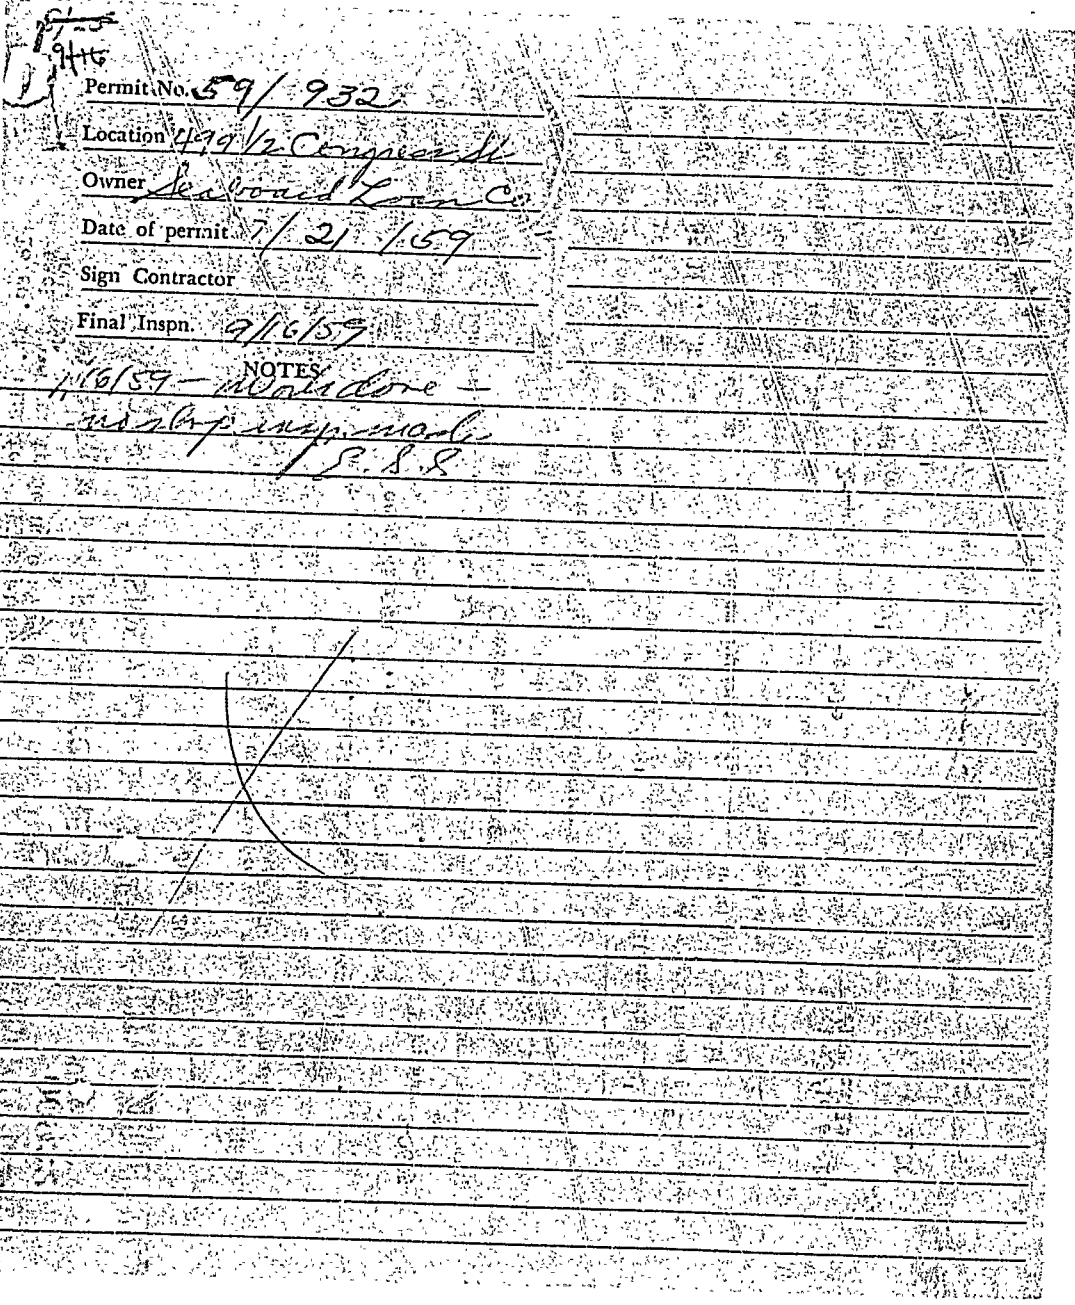 9/16
Permit No. 59/932
Location 499 1/2 Congress St
Owner Seaboard Loan Co.
Date of permit 7/21/59
Sign Contractor
Final Inspn. 9/16/59
NOTES
16/59 - Work done -
no shop insp. made
E.S.S